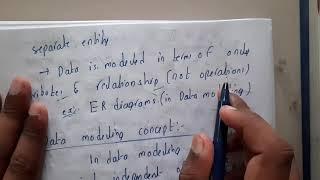 separate entity
→ Data is modeled in terms of only
ributes & relationship (not operations)
ex:- ER diagrams (in Data modeling)
Data modeling concept:-
In data modeling
independent